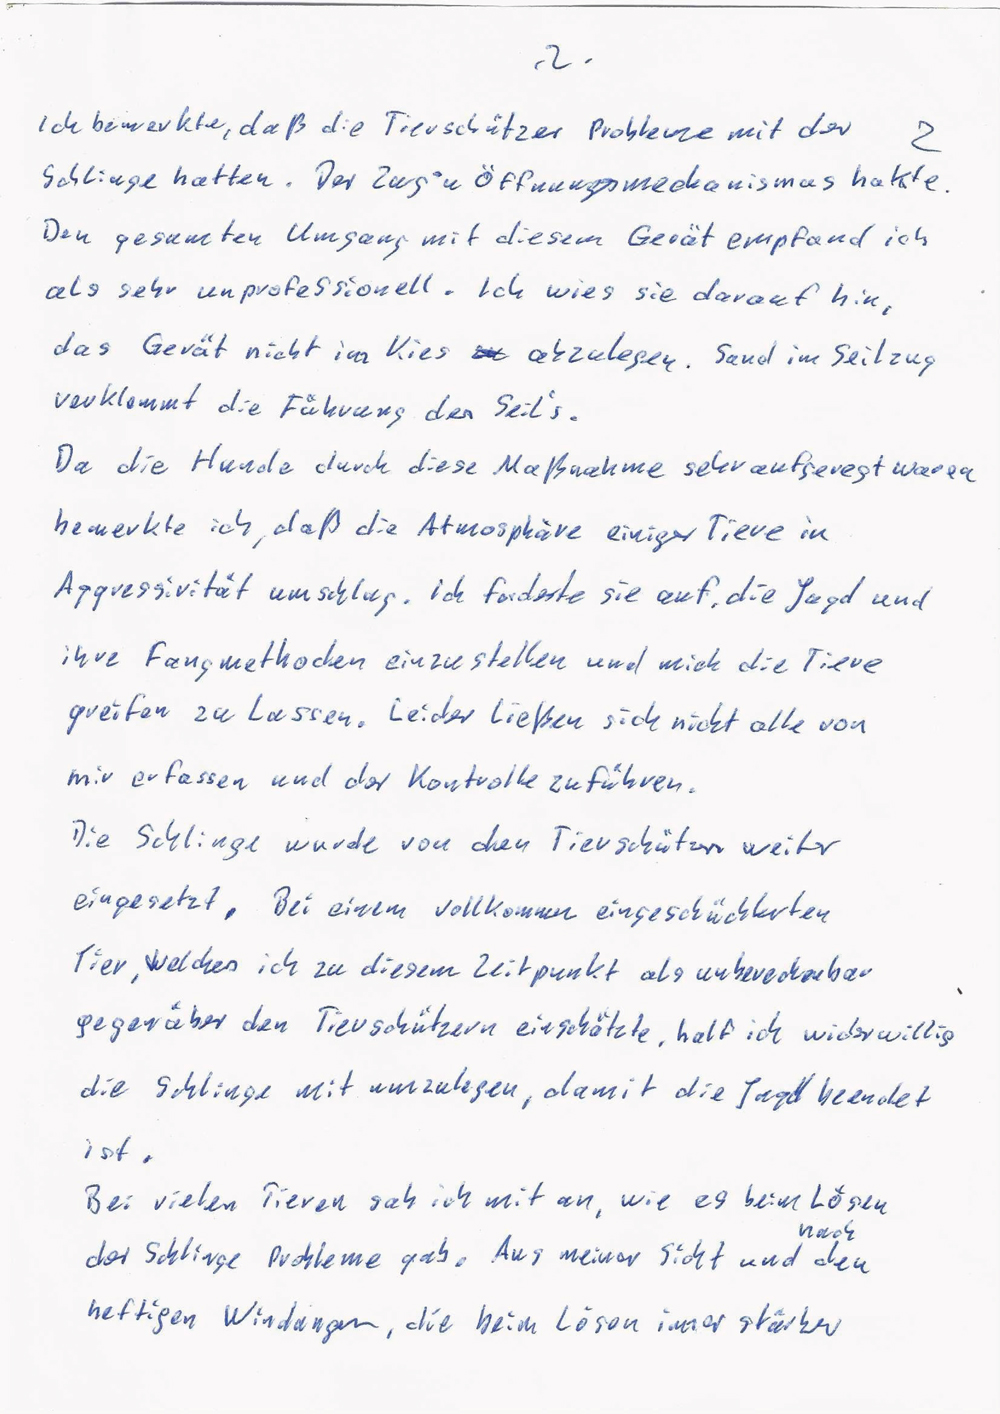 .2.
2
Ich bemerkte, daß die Tierschützer Probleme mit der
Schlinge hatten. Der Zug'n Öffnungsmechanismus hakte.
Den gesamten Umgang mit diesem Gerät empfand ich
als sehr unprofessionell. Ich wies sie darauf hin,
das Gerät nicht im Kies abzulegen. Sand im Seilzug
verklemmt die Führung des Seil's.
Da die Hunde durch diese Maßnahme sehr aufgeregt waren
bemerkte ich, daß die Atmosphäre einiger Tiere in
Aggressivität umschlug. Ich forderte sie auf, die Jagd und
ihre Fangmethoden einzustellen und mich die Tiere
greifen zu lassen. Leider ließen sich nicht alle von
mir erfassen und der Kontrolle zuführen.
Die Schlinge wurde von den Tierschützern weiter
eingesetzt. Bei einem vollkommen eingeschüchterten
Tier, welches ich zu diesem Zeitpunkt als unberechenbar
gegenüber den Tierschützern einschätzte, half ich widerwillig
die Schlinge mit umzulegen, damit die Jagd beendet
ist.
Bei vielen Tieren sah ich mit an, wie es beim Lösen
der Schlinge Probleme gab. Aus meiner Sicht und nach den
heftigen Windungen, die beim Lösen immer stärker